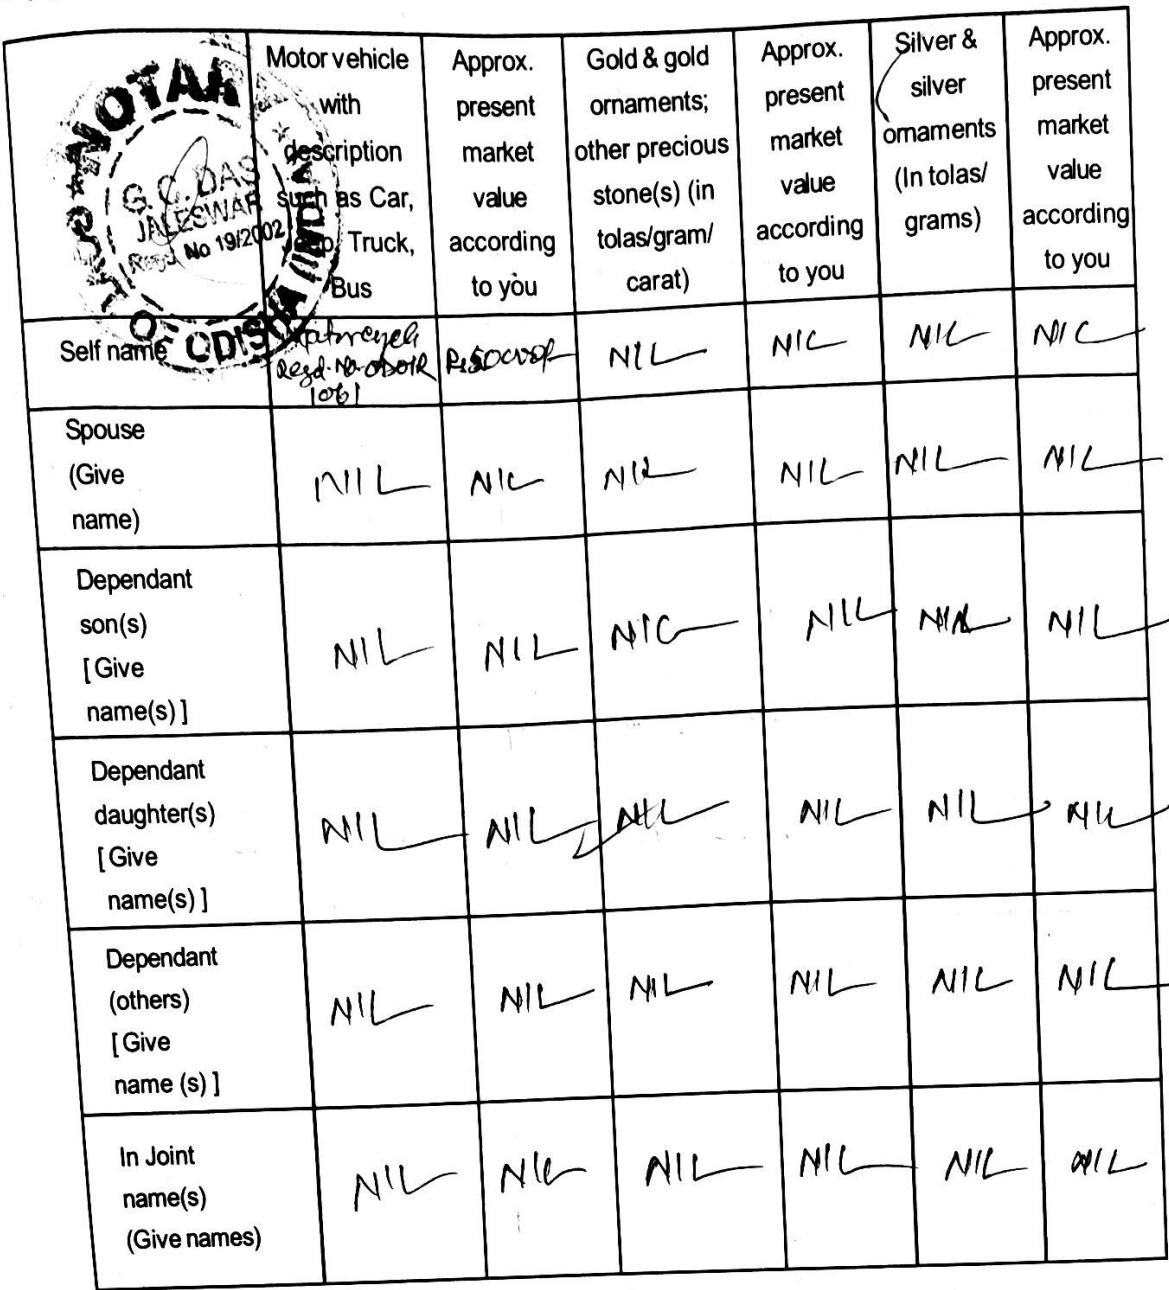 Motor vehicle
with
description
such as Car,
Jeep, Truck,
Bus
Approx.
present
market
value
according
to you
Gold & gold
ornaments;
other precious
stone(s) (in
tolas/gram/
carat)
Approx.
present
market
value
according
to you
Silver &
silver
ornaments
(In tolas/
grams)
Approx.
present
market
value
according
to you
NOTAR
G. C. DAS
JALESWAR
Regd. No 19/2002
ODISHA (INDIA)
Self name
Motorcycle
Regd. No-
1061
NIL
NIL
NIL
NIL
Spouse
(Give
name)
NIL
NIL
NIL
NIL
NIL
NIL
Dependant
son(s)
[ Give
name(s) ]
NIL
NIL
NIL
NIL
NIL
NIL
Dependant
daughter(s)
[ Give
name(s) ]
NIL
NIL
NIL
NIL
NIL
NIL
Dependant
(others)
[ Give
name (s) ]
NIL
NIL
NIL
NIL
NIL
NIL
In Joint
name(s)
(Give names)
NIL
NIL
NIL
NIL
NIL
NIL